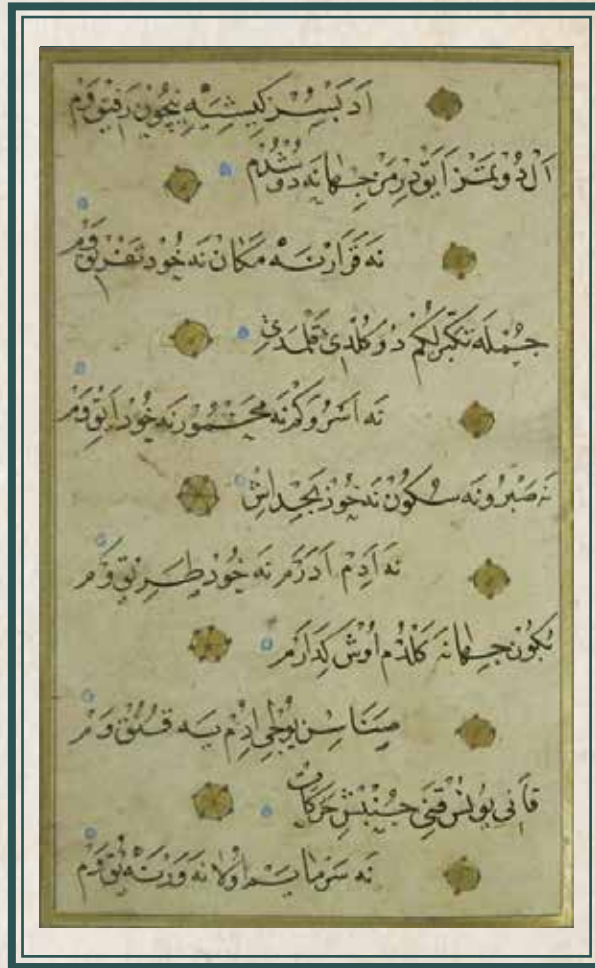 اَدَبْسِزْ كِيشِيَه نِيچُونْ رَفِيقْ وَمْ
اَلْ دُوتْمَزْ اَيَقْ دِرْمَزْ جِهَانَه دُوشْدُمْ
نَه قَرَارْ نَه مَكَانْ نَه خُودْ تَفْرِيقْ وَمْ
جُمْلَه تَكَبُّرْلِكُمْ دُوكَلْدِى قَلْمَدِى
نَه اَسْرُوكَمْ نَه مَخْمُورْ نَه خُودْ اَيِقْ وَمْ
نَه صَبْرُ و نَه سُكُونْ نَه خُودْ
نَه اَدِمْ اَدَرَمْ نَه خُودْ طَرِيقْ وَمْ
بُكُونْ جِهَانَه كَلْدُمْ اُوشْ كِدَارَمْ
صِينَاسِنْ يُوجِلِى اِدِمْ يَه قُلُقْ وَمْ
قَانِى يُونُسْ قَنِى جُنْبُشِ حَرَكَاتْ
نَه سَرْمَايَمْ اُولَا نَه وَرْتَه يُقْ وَمْ